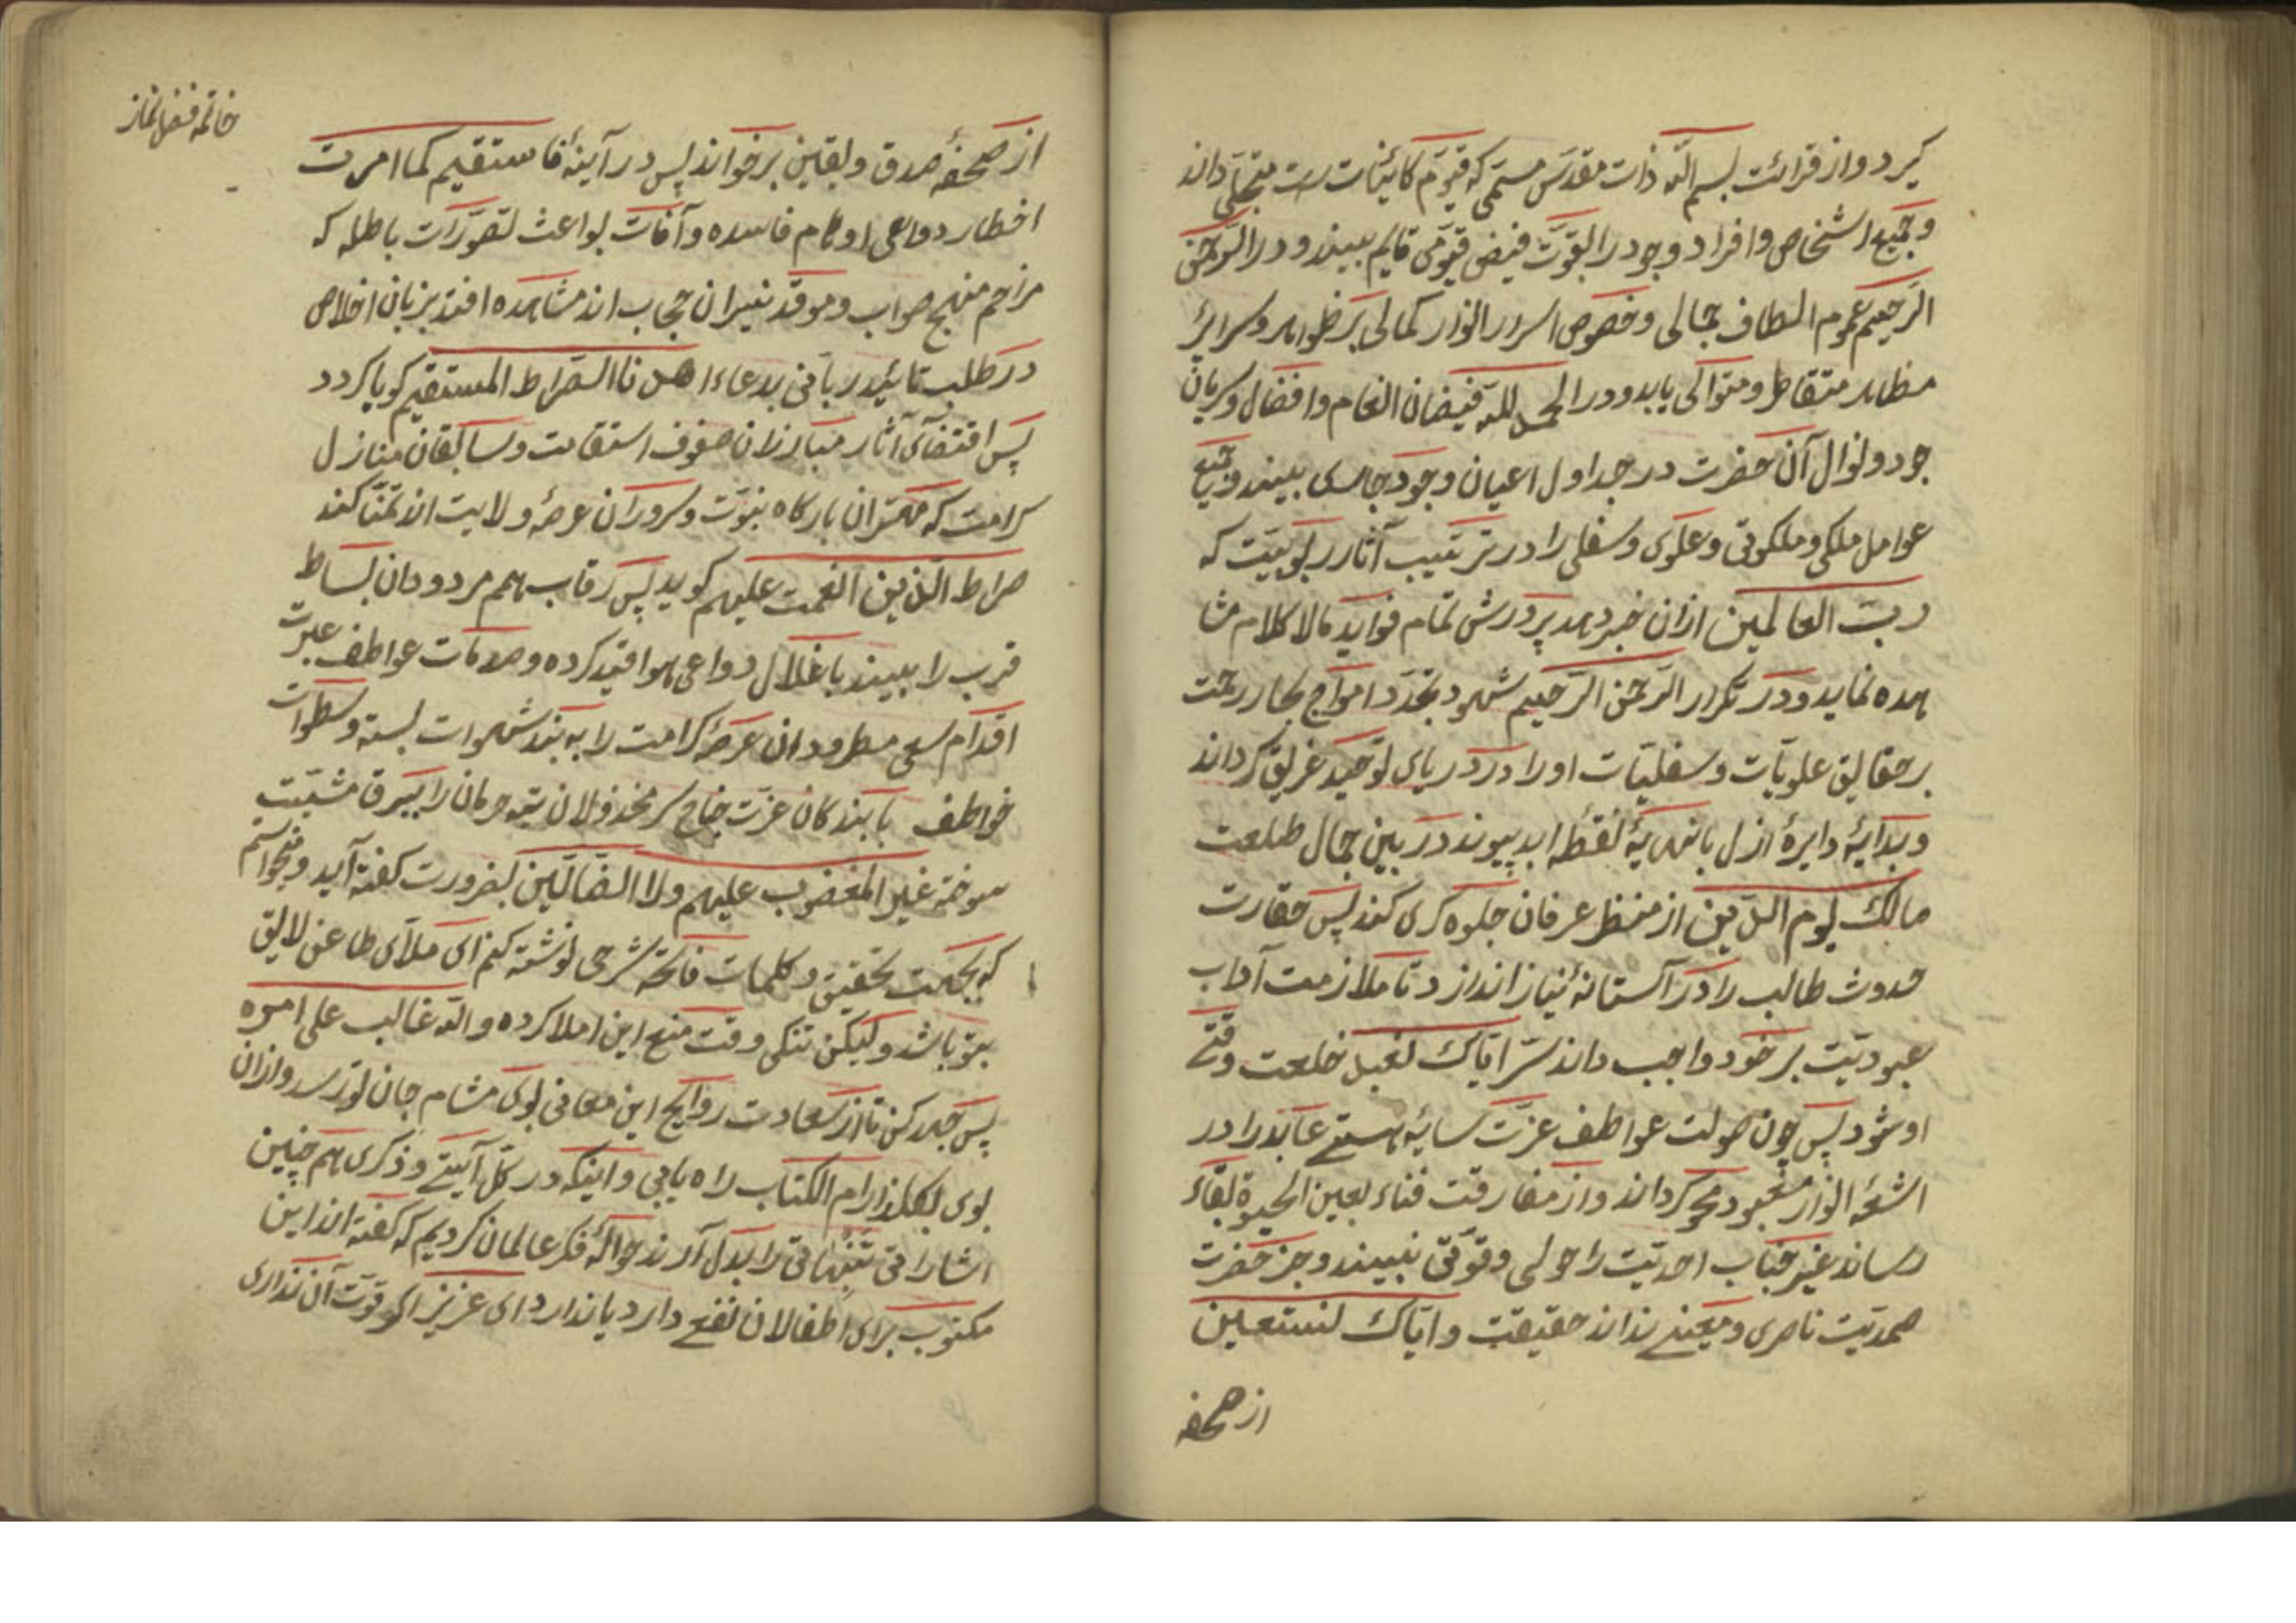 کیرد و از قرائت بسم الله ذات مقدس مسمی که قیوم کائینات است متجلی داند
و جمیع اشخاص و افراد وجود را بقوت فیض قیومی قایم بیند و در الرحمن
الرحیم عموم الطاف جمالی و خصوص اسرار انوار کمالی بر ظواهر و سرائر
مظاهر متقاطر و متوالی یابد و در الحمد لله فیضان انعام و افضال و سریان
جود و نوال آن حضرت در جداول اعیان وجود جاری بیند و جمیع
عوامل ملکی و ملکوتی و علوی و سفلی را در ترتیب آثار ربوبیت که
رب العالمین ازان خبر دهد پرورش تمام فواید مالا کلام مشا
هده نماید و در تکرار الرحمن الرحیم شهود تجدد امواج بحار رحمت
بر حقایق علویات و سفلیات او را در دریای توحید غریق کرداند
و بدایهٔ دایرهٔ ازل بانهایهٔ نقطه ابد پیوندد در بین جمال طلعت
مالک یوم الدین از منظر عرفان جلوه کری کند پس حقارت
حدوث طالب را در آستانهٔ نیاز اندازد تا ملازمت آداب
عبودیت بر خود واجب داند سر ایاک نعبد خلعت وقتی
او شود پس چون صولت عواطف عزت سایهٔ هستی عابد را در
اشعهٔ انوار معبود محو کرداند و از مفارقت فناء بعین الحیوة بقاء
رساند غیر جناب احدیت را حولی و قوتی نبیند و جز حضرت
صمدیت ناصری و معینی نداند حقیقت و ایاک نستعین
از صحفه
خاتمه فضل نماز
از صحفهٔ صدق و یقین برخواند پس در آینهٔ فاستقیم کما امرت
اخطار دواعی اوهام فاسده و آفات بواعث تصورات باطله که
مزاحم منهج صواب و موقد نیران حجاب اند مشاهده افتد بزبان اخلاص
در طلب تائید ربانی بدعاء اهدنا الصراط المستقیم کویا کردد
پس اقتفآی آثار مبارزان صفوف استقامت و سابقان منازل
کرامت که مهتران بارکاه نبوت و سروران عرصهٔ ولایت اند تمنا کند
صراط الذین انعمت علیهم کوید پس رقاب همم مردودان بساط
قرب را ببیند باغلال دواعی هوا قید کرده و صدمات عواطف عبرت
اقدام سعی مطرودان عرصهٔ کرامت را به بند شهوات بسته و سطوات
خواطف بابندکان عزت جناح سر مخذولان تیه حرمان را ببرق مشیت
سوخته غیر المغضوب علیهم و لا الضالین بضرورت کفته آید و میخواستم
که بحکمت تحقیق و کلمات فاتحه شرحی نوشته کنم ای ملای طاعن لایق
بتو باشد ولیکن تنکی وقت منع این املا کرده والله غالب علی امره
پس جهد کن تا از سعادت روایح این معانی بوی مشام جان تو رسد و ازان
بوی بکلزار ام الکتاب راه یابی و اینکه در کل آیتی و ذکری هم چنین
اشاراتی تنبهاتی را بدل آرند حوالهٔ فکر عالمان کردیم که کفته اند این
مکتوب برای اطفالان نفعی دارد یا ندارد ای عزیز اکر قوت آن نداری